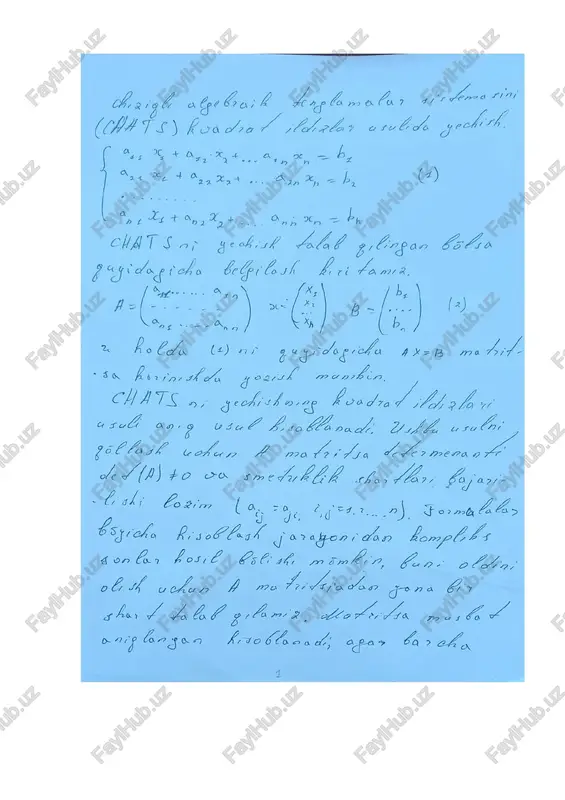 chiziqli algebraik tenglamalar sistemasini
(CHATS) kvadrat ildizlar usulida yechish.
a₁₁ x₁ + a₁₂ x₂ + ... a₁n xn = b₁
a₂₁ x₁ + a₂₂ x₂ + ... a₂n xn = b₂ (1)
. . . . . . . .
an₁ x₁ + an₂ x₂ + ... ann xn = bn
CHATS ni yechish talab qilingan bõlsa
quyidagicha belgilash kiritamiz.
A = (a₁₁ ...... a₁n ...... an₁ ...... ann) x = (x₁ x₂ ... xn) B = (b₁ .... bn) (2)
u holda (1) ni quyidagicha AX=B matrit-
-sa korinishda yozish mumkin.
CHATS ni yechishning kvadrat ildizlari
usuli aniq usul hisoblanadi. Ushbu usulni
qõllash uchun A matritsa determenanti
det(A) ≠ 0 va smetriklik shartlari bajari-
-lishi lozim (aij = aji, i,j=1,2...n). Formulalar
bõyicha hisoblash jarayonidan kompliks
sonlar hosil bõlishi mõmkin, buni oldini
olish uchun A matritsiadan yana bir
shart talab qilamiz. Matritsa musbat
aniqlangan hisoblanadi, agar barcha
2
FaylHub.uz